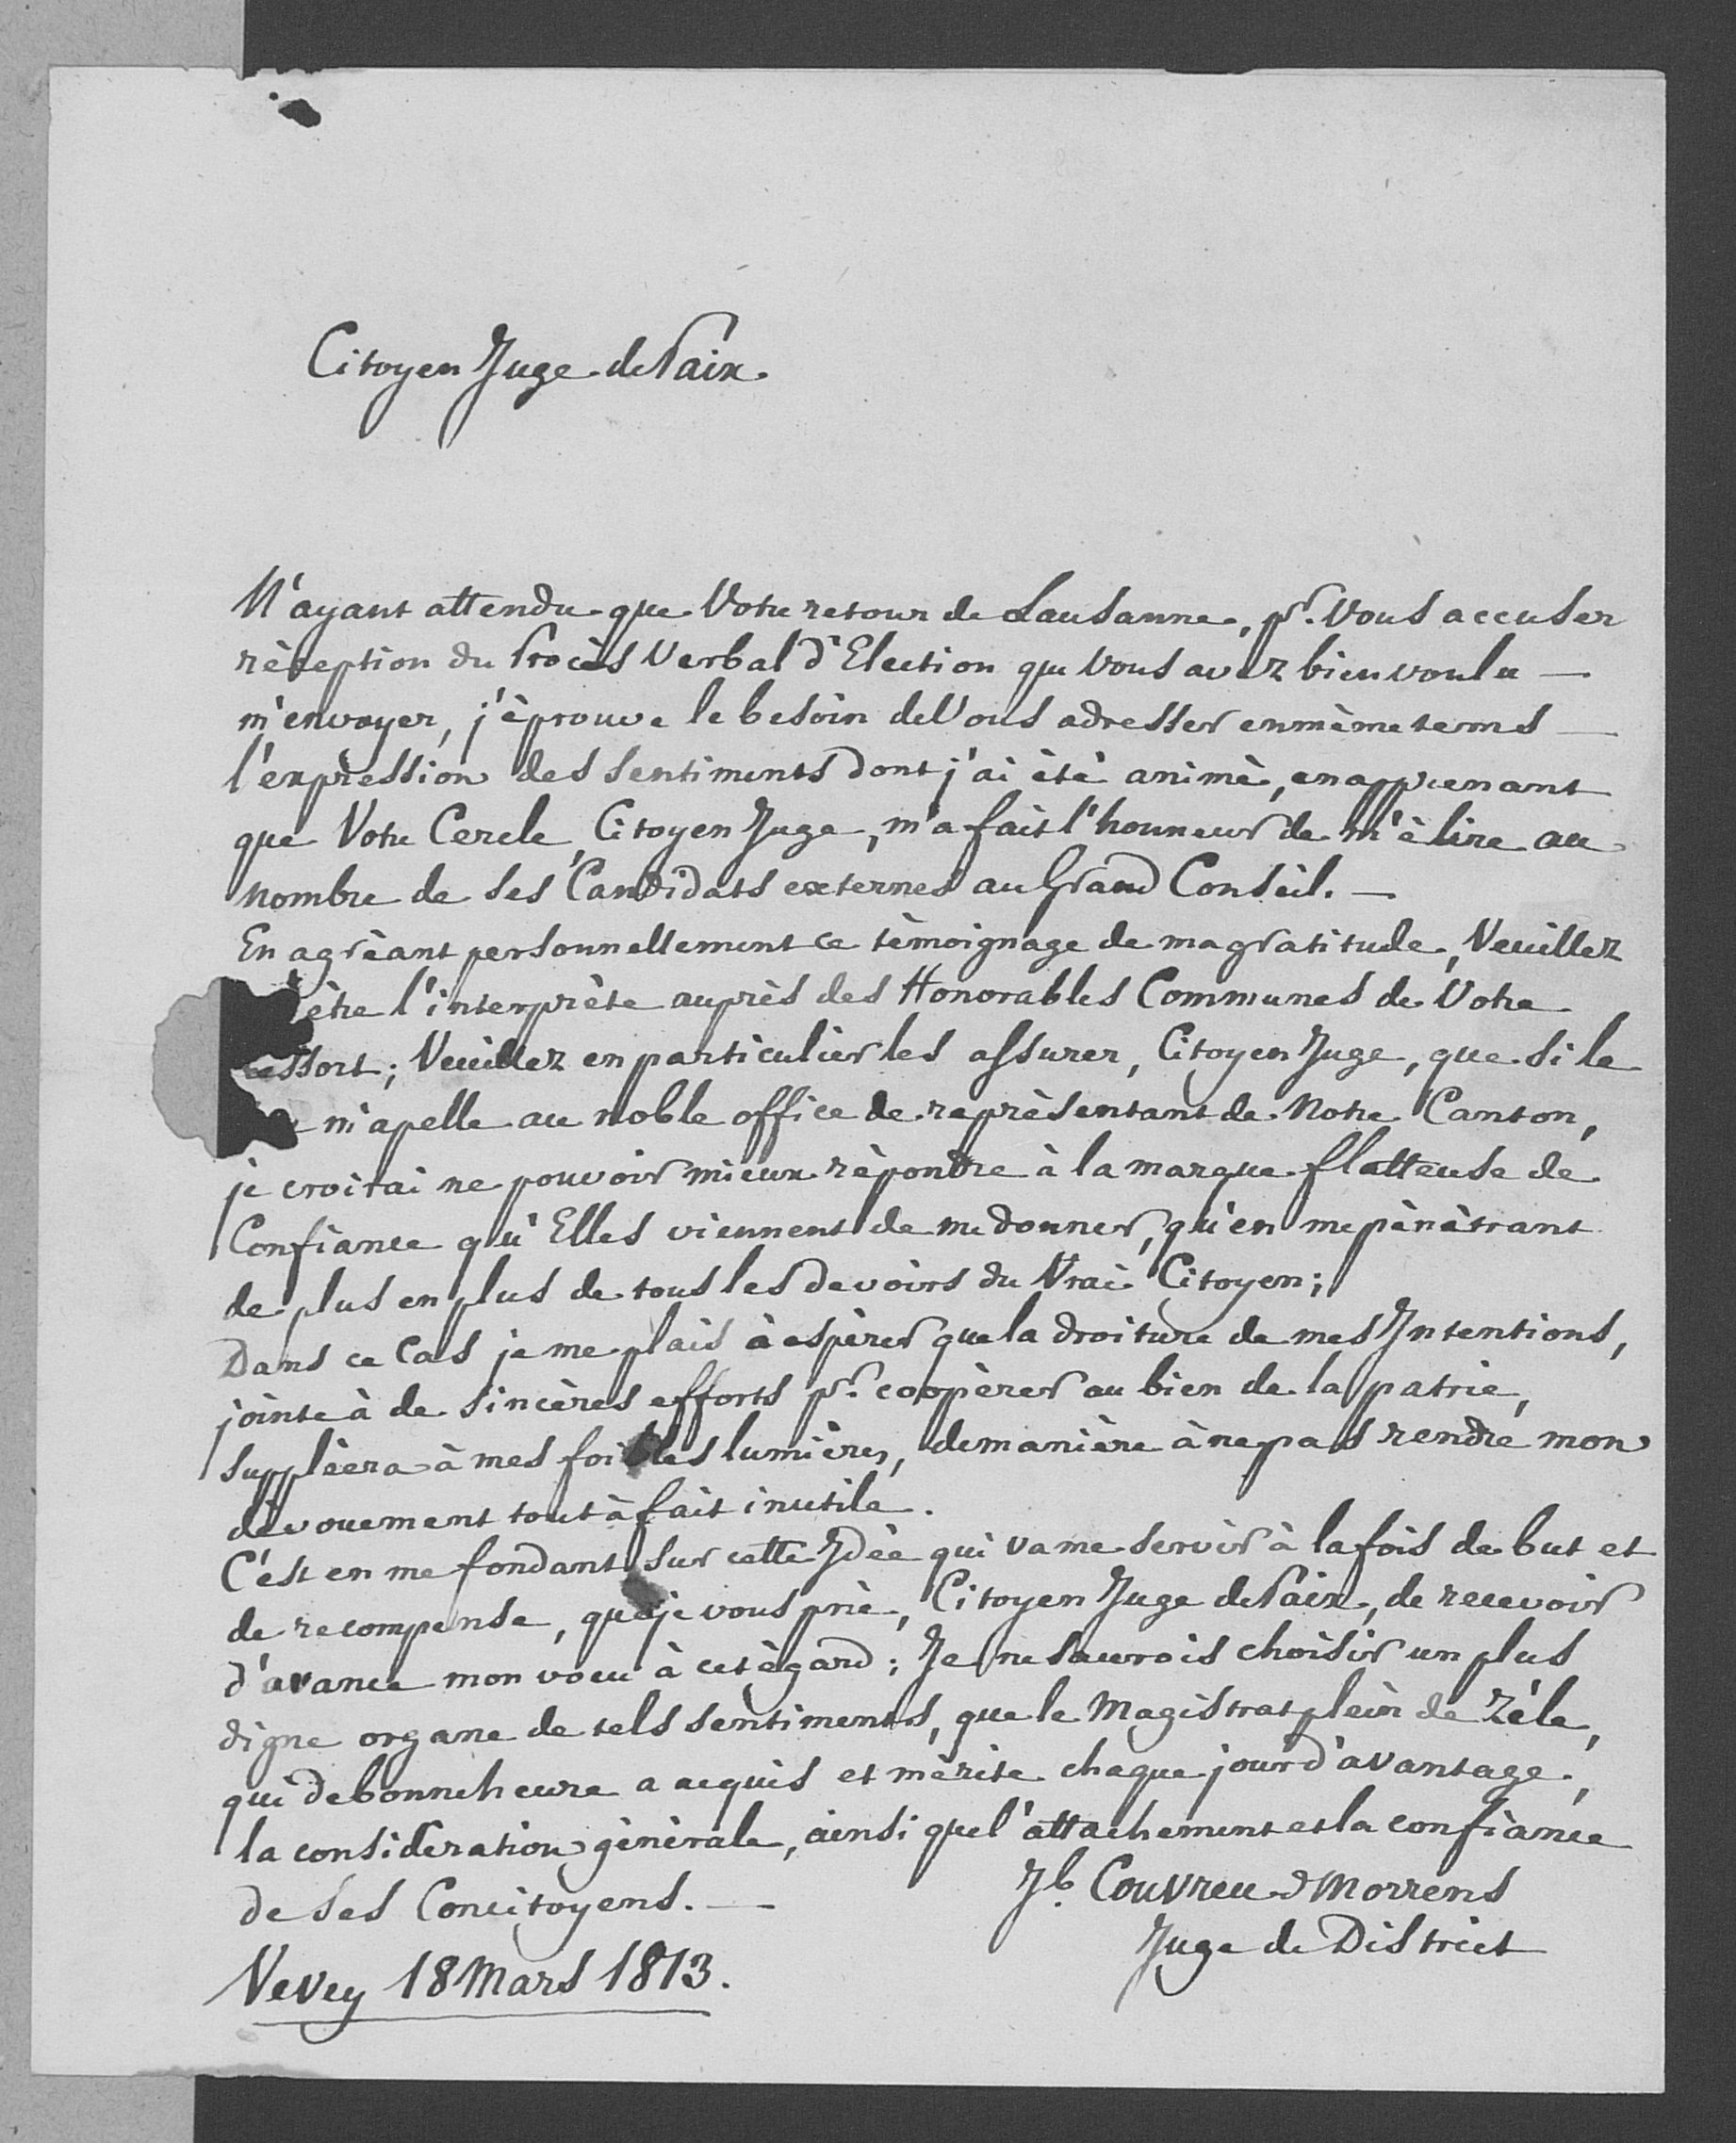 Citoyen Juge de Paix.
N'ayant attendu que Votre retour de Lausanne, pr. Vous accuser
rèception du Procès Verbal d'Election que Vous avez bien voulu —
m'envoyer, j'èprouve le besoin de Vous adresser en mème tems —
l'expression des sentiments dont j'ai ètè animè, en apprenant
que Votre Cercle, Citoyen Juge, m'a fait l'honneur de m'èlire au
nombre de ses Candidats externes au Grand Conseil. —
En agrèant personnellement ce tèmoignage de ma gratitude, Veuillez
ètre l'interprète auprès des Honorables Communes de Votre
ressort; Veuillez en particulier les assurer, Citoyen Juge, que si le
m'apelle au noble office de reprèsentant de Notre Canton,
je croirai ne pouvoir mieux rèpondre à la marque flatteuse de
Confiance qu'Elles viennent de me donner, qu'en me pènètrant
de plus en plus de tous les devoirs du Vrai Citoyen;
Dans ce Cas je me plais à espèrer que la droiture de mes Intentions,
jointe à de sincères efforts pr. coopèrer au bien de la patrie,
supplèera à mes foibles lumières, de manière à ne pas rendre mon
dèvouement tout à fait inutile.
C'est en me fondant sur cette Idèe qui va me servir à la fois de but et
de recompense, que je vous prie, Citoyen Juge de Paix, de recevoir
d'avance mon voeu à cet ègard; Je ne saurois choisir un plus
digne organe de tels sentiments, que le Magistrat plein de Zèle,
qui de bonne heure a acquis et mèrite chaque jour d'avantage,
la considèration gènèrale, ainsi que l'attachement et la confiance
de ses Concitoyens. —
Jb. Couvreu d Morrens
Juge de District
Vevey 18 Mars 1813.